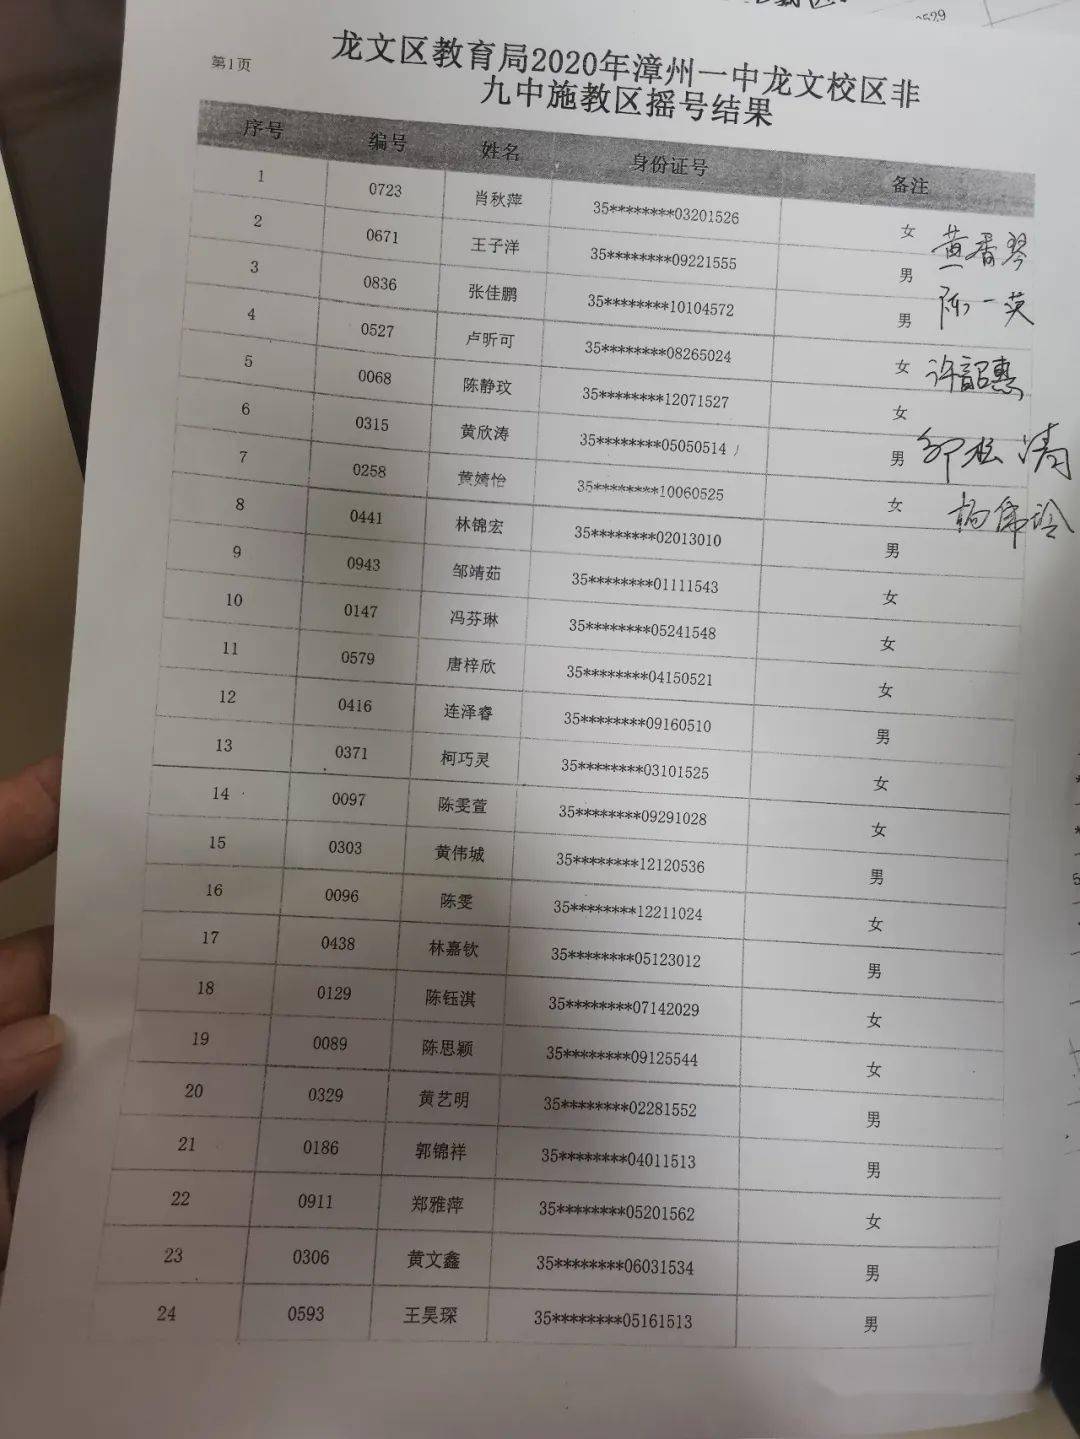 0529
第1页
龙文区教育局2020年漳州一中龙文校区非
九中施教区摇号结果
序号 编号 姓名 身份证号 备注
1 0723 肖秋萍 35********03201526 女
2 0671 王子洋 35********09221555 男
3 0836 张佳鹏 35********10104572 男
4 0527 卢昕可 35********08265024 女
5 0068 陈静玟 35********12071527 女
6 0315 黄欣涛 35********05050514 男
7 0258 黄婧怡 35********10060525 女
8 0441 林锦宏 35********02013010 男
9 0943 邹靖茹 35********01111543 女
10 0147 冯芬琳 35********05241548 女
11 0579 唐梓欣 35********04150521 女
12 0416 连泽睿 35********09160510 男
13 0371 柯巧灵 35********03101525 女
14 0097 陈雯萱 35********09291028 女
15 0303 黄伟城 35********12120536 男
16 0096 陈雯 35********12211024 女
17 0438 林嘉钦 35********05123012 男
18 0129 陈钰淇 35********07142029 女
19 0089 陈思颖 35********09125544 女
20 0329 黄艺明 35********02281552 男
21 0186 郭锦祥 35********04011513 男
22 0911 郑雅萍 35********05201562 女
23 0306 黄文鑫 35********06031534 男
24 0593 王昊琛 35********05161513 男
黄香琴
陈一英
许韶惠
邹松清